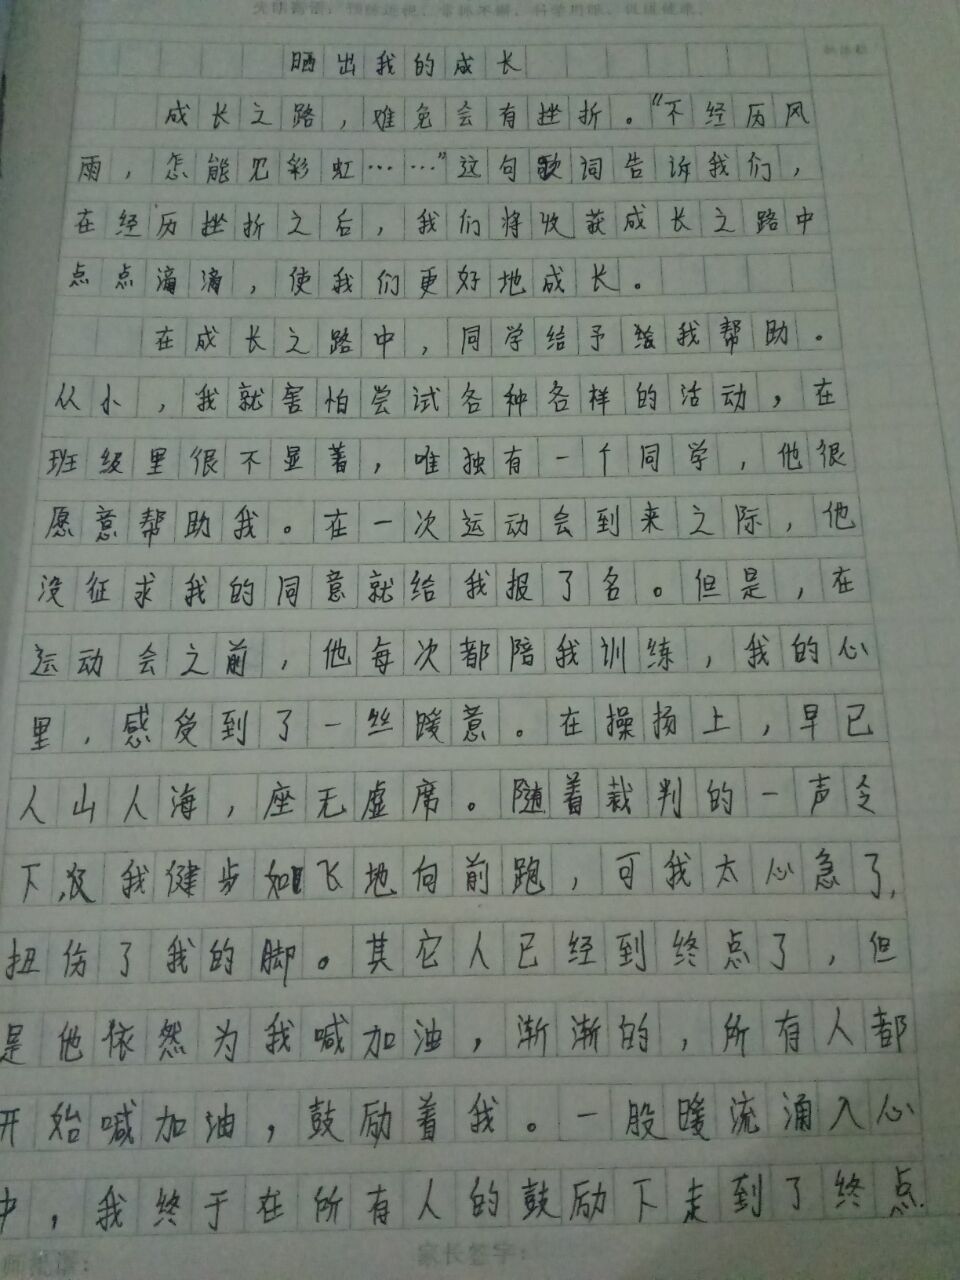 晒出我的成长
成长之路，难免会有挫折。“不经历风
雨，怎能见彩虹……”这句歌词告诉我们，
在经历挫折之后，我们将收获成长之路中
点点滴滴，使我们更好地成长。
在成长之路中，同学给予给我帮助。
从小，我就害怕尝试各种各样的活动，在
班级里很不显著，唯独有一个同学，他很
愿意帮助我。在一次运动会到来之际，他
没征求我的同意就给我报了名。但是，在
运动会之前，他每次都陪我训练，我的心
里，感受到了一丝暖意。在操场上，早已
人山人海，座无虚席。随着裁判的一声令
下，我健步如飞地向前跑，可我太心急了，
扭伤了我的脚。其它人已经到终点了，但
是他依然为我喊加油，渐渐的，所有人都
开始喊加油，鼓励着我。一股暖流涌入心
中，我终于在所有人的鼓励下走到了终点
家长签字：